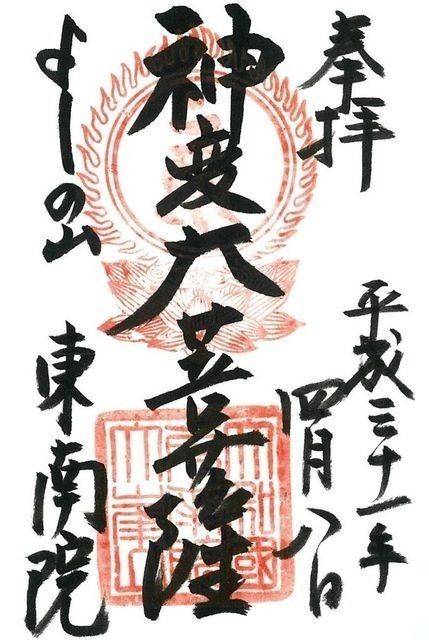 奉拝
平成三十一年
四月八日
神変大菩薩
よしの山
東南院